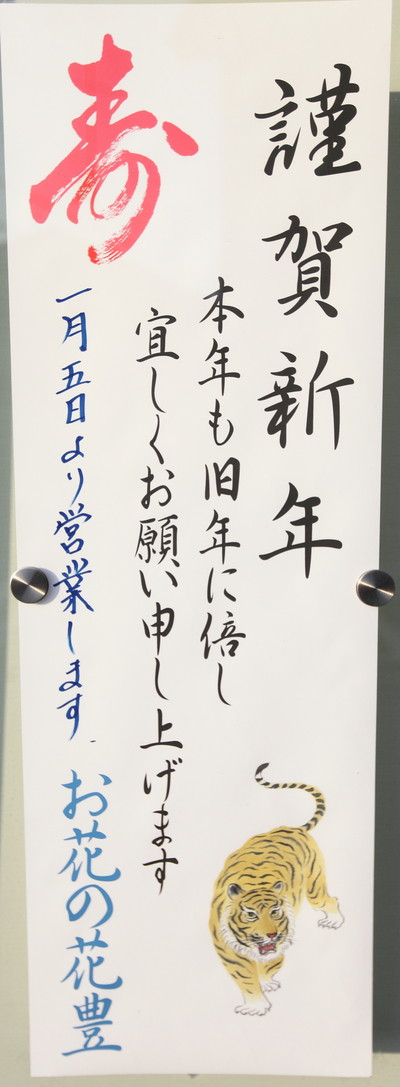 謹賀新年
本年も旧年に倍し
宜しくお願い申し上げます
寿
一月五日より営業します.
お花の花豊